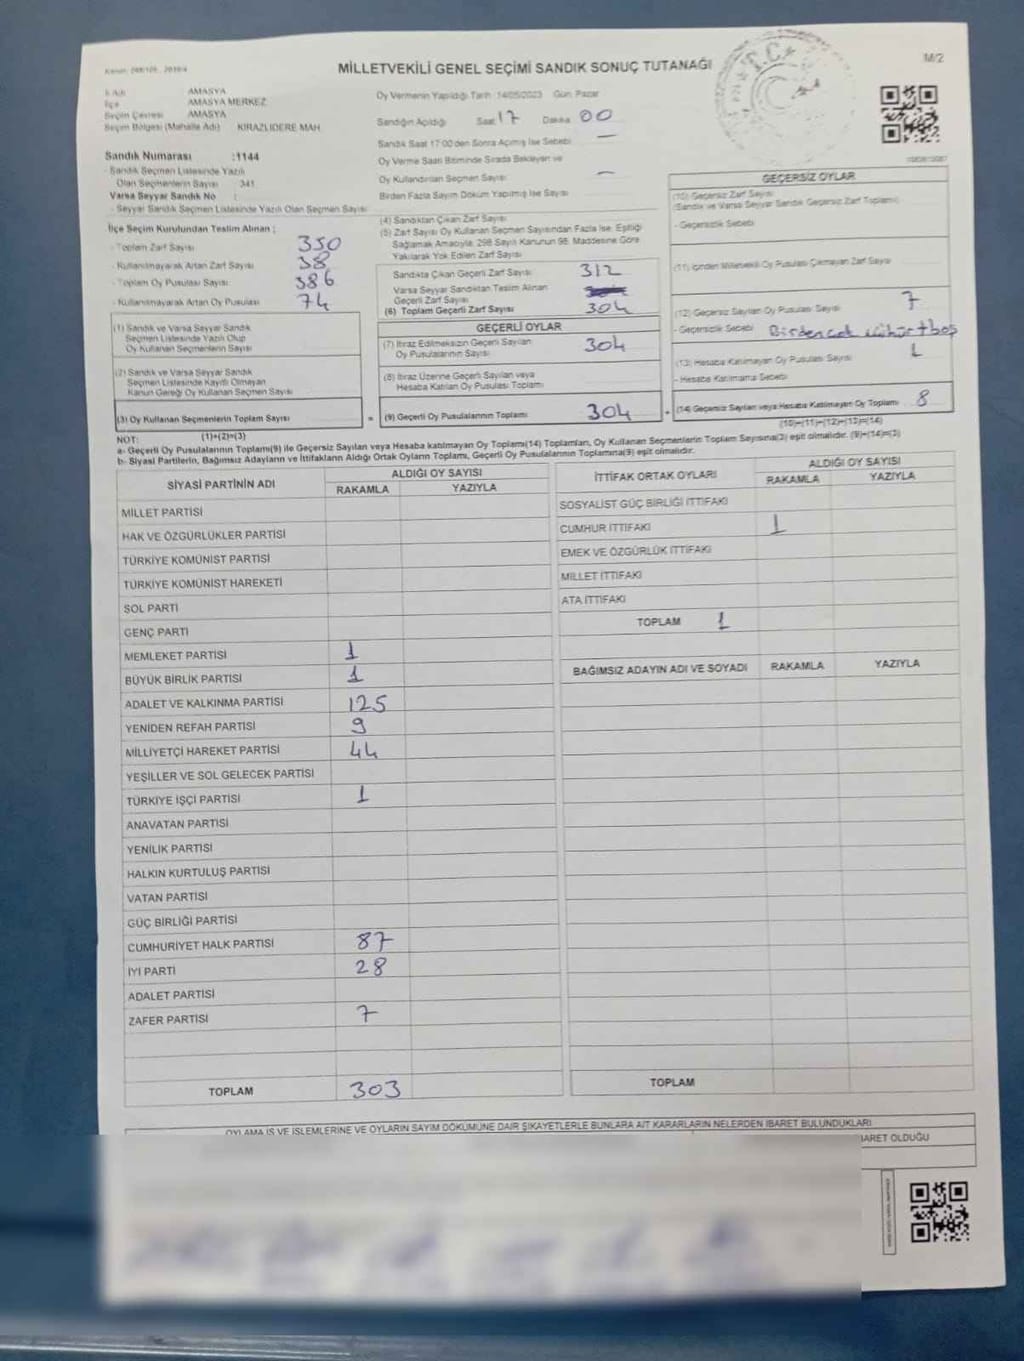 MİLLETVEKİLİ GENEL SEÇİMİ SANDIK SONUÇ TUTANAĞI
M/2
T.C.
İl Adı AMASYA
İlçe AMASYA MERKEZ
Seçim Çevresi AMASYA
Seçim Bölgesi (Mahalle Adı) KIRAZLIDERE MAH.
Sandık Numarası :1144
- Sandık Seçmen Listesinde Yazılı
Olan Seçmenlerin Sayısı 341
Varsa Seyyar Sandık No :
- Seyyar Sandık Seçmen Listesinde Yazılı Olan Seçmen Sayısı
İlçe Seçim Kurulundan Teslim Alınan ;
- Toplam Zarf Sayısı 350
- Kullanılmayarak Artan Zarf Sayısı 38
- Toplam Oy Pusulası Sayısı 386
- Kullanılmayarak Artan Oy Pusulası 74
(1) Sandık ve Varsa Seyyar Sandık
Seçmen Listesinde Yazılı Olup
Oy Kullanan Seçmenlerin Sayısı
(2) Sandık ve Varsa Seyyar Sandık
Seçmen Listesinde Kaydı Olmayan
Kanun Gereği Oy Kullanan Seçmen Sayısı
(3) Oy Kullanan Seçmenlerin Toplam Sayısı =
Oy Vermenin Yapıldığı Tarih :14/05/2023 Gün: Pazar
Sandığın Açıldığı Saat 17 Dakika 00
Sandık Saat 17:00'den Sonra Açılmış İse Sebebi —
Oy Verme Saati Bitiminde Sırada Bekleyen ve
Oy Kullandırılan Seçmen Sayısı —
Birden Fazla Sayım Döküm Yapılmış İse Sayısı
(4) Sandıktan Çıkan Zarf Sayısı
(5) Zarf Sayısı Oy Kullanan Seçmen Sayısından Fazla İse, Eşitliği
Sağlamak Amacıyla, 298 Sayılı Kanunun 98. Maddesine Göre
Yakılarak Yok Edilen Zarf Sayısı
Sandıkta Çıkan Geçerli Zarf Sayısı 312
Varsa Seyyar Sandıktan Teslim Alınan
Geçerli Zarf Sayısı
(6) Toplam Geçerli Zarf Sayısı 304
GEÇERLİ OYLAR
(7) İtiraz Edilmeksizin Geçerli Sayılan
Oy Pusulalarının Sayısı 304
(8) İtiraz Üzerine Geçerli Sayılan veya
Hesaba Katılan Oy Pusulası Toplamı
(9) Geçerli Oy Pusulalarının Toplamı 304 +
GEÇERSİZ OYLAR
(10) Geçersiz Zarf Sayısı
(Sandık ve Varsa Seyyar Sandık Geçersiz Zarf Toplamı)
- Geçersizlik Sebebi
(11) İçinden Milletvekili Oy Pusulası Çıkmayan Zarf Sayısı
(12) Geçersiz Sayılan Oy Pusulası Sayısı 7
- Geçersizlik Sebebi Birden çok mühür+boş
(13) Hesaba Katılmayan Oy Pusulası Sayısı 1
- Hesaba Katılmama Sebebi
(14) Geçersiz Sayılan veya Hesaba Katılmayan Oy Toplamı 8
(10)+(11)+(12)+(13)=(14)
NOT: (1)+(2)=(3)
a- Geçerli Oy Pusulalarının Toplamı(9) ile Geçersiz Sayılan veya Hesaba katılmayan Oy Toplamı(14) Toplamları, Oy Kullanan Seçmenlerin Toplam Sayısına(3) eşit olmalıdır. (9)+(14)=(3)
b- Siyasi Partilerin, Bağımsız Adayların ve İttifakların Aldığı Ortak Oyların Toplamı, Geçerli Oy Pusulalarının Toplamına(9) eşit olmalıdır.
SİYASİ PARTİNİN ADI ALDIĞI OY SAYISI
RAKAMLA YAZIYLA
MİLLET PARTİSİ
HAK VE ÖZGÜRLÜKLER PARTİSİ
TÜRKİYE KOMÜNİST PARTİSİ
TÜRKİYE KOMÜNİST HAREKETİ
SOL PARTİ
GENÇ PARTİ
MEMLEKET PARTİSİ 1
BÜYÜK BİRLİK PARTİSİ 1
ADALET VE KALKINMA PARTİSİ 125
YENİDEN REFAH PARTİSİ 9
MİLLİYETÇİ HAREKET PARTİSİ 44
YEŞİLLER VE SOL GELECEK PARTİSİ
TÜRKİYE İŞÇİ PARTİSİ 1
ANAVATAN PARTİSİ
YENİLİK PARTİSİ
HALKIN KURTULUŞ PARTİSİ
VATAN PARTİSİ
GÜÇ BİRLİĞİ PARTİSİ
CUMHURİYET HALK PARTİSİ 87
İYİ PARTİ 28
ADALET PARTİSİ
ZAFER PARTİSİ 7
TOPLAM 303
İTTİFAK ORTAK OYLARI ALDIĞI OY SAYISI
RAKAMLA YAZIYLA
SOSYALİST GÜÇ BİRLİĞİ İTTİFAKI
CUMHUR İTTİFAKI 1
EMEK VE ÖZGÜRLÜK İTTİFAKI
MİLLET İTTİFAKI
ATA İTTİFAKI
TOPLAM 1
BAĞIMSIZ ADAYIN ADI VE SOYADI RAKAMLA YAZIYLA
TOPLAM
OYLAMA İŞ VE İŞLEMLERİNE VE OYLARIN SAYIM DÖKÜMÜNE DAİR ŞİKAYETLERLE BUNLARA AİT KARARLARIN NELERDEN İBARET BULUNDUKLARI
BARET OLDUĞU